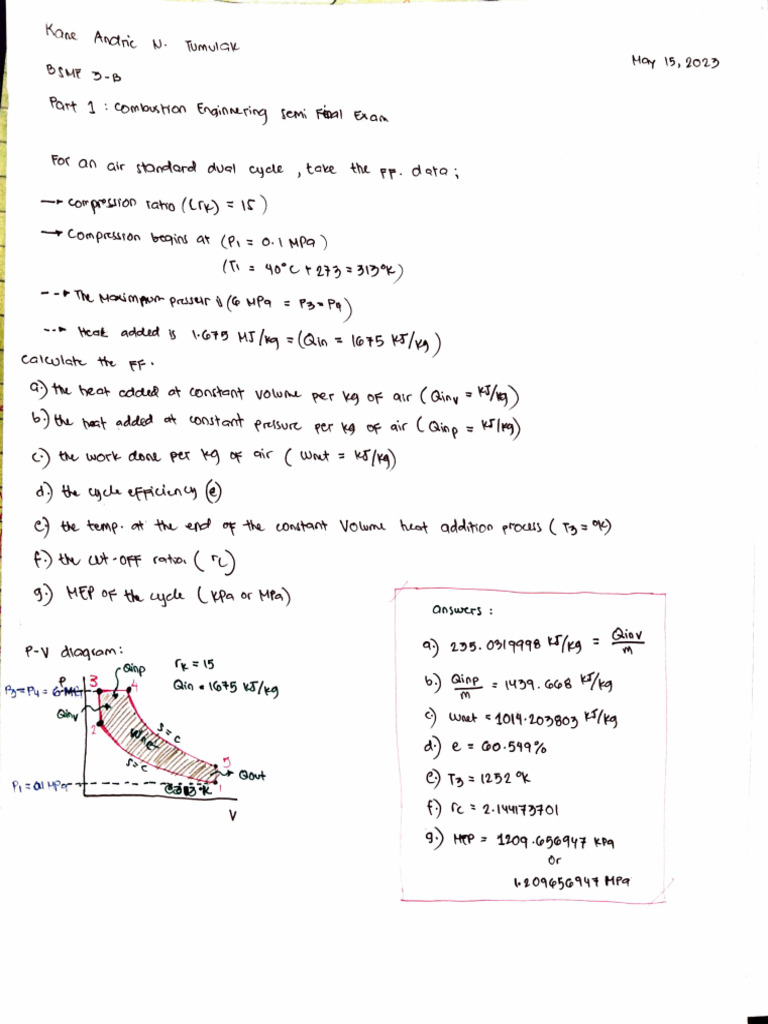 Kane Andric N. Tumulak
May 15, 2023
BSMP 3-B
Part 1 : Combustion Enginnering Semi Final Exam
For an air standard dual cycle, take the FF. data;
→ compression ratio ((rk) = 15)
→ Compression begins at (P1 = 0.1 MPa)
(T1 = 40°C + 273 = 313°K)
--→ The Maximpum pressetr is (6 MPa = P3=P4)
--→ Heat added is 1.675 MJ/kg = (Qin = 1675 KJ/kg)
Calculate the FF.
a.) the heat added at constant volume per kg of air (Qinv = KJ/kg)
b.) the heat added at constant pressure per kg of air (Qinp = KJ/kg)
c.) the work done per kg of air (Wnet = KJ/kg)
d.) the cycle efficiency (e)
e.) the temp. at the end of the constant Volume heat addition process (T3 = °K)
f.) the cut-off ratio. (rc)
g.) MEP of the cycle (KPa or MPa)
P-V diagram:
rk = 15
Qin = 1675 KJ/kg
Qinp
P
3
4
P3 = P4 = 6 MPa
Qinv
2
S=C
Wnet
S=C
5
Qout
P1 = 0.1 MPa
1
V
answers :
a.) 235.0319998 KJ/kg = Qinv/m
b.) Qinp/m = 1439.668 KJ/kg
c.) Wnet = 1014.203803 KJ/kg
d.) e = 60.549%
e.) T3 = 1252 °K
f.) rc = 2.144173701
g.) MEP = 1209.656947 KPa
or
1.209656947 MPa